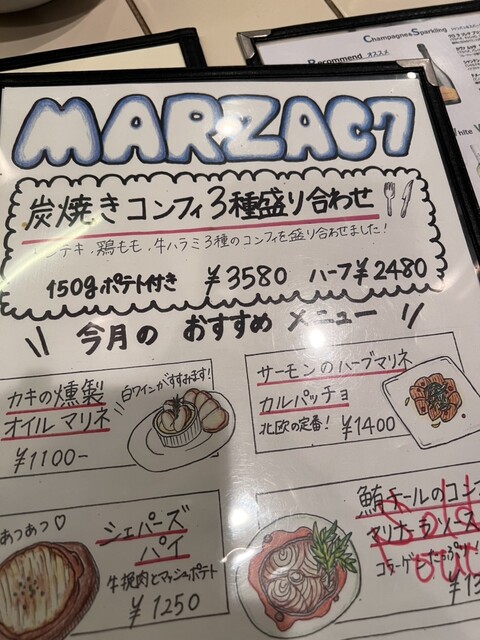 Champagne&Sparkling
Recommend オススメ
MARZAC7
炭焼きコンフィ3種盛り合わせ
鶏もも、牛ハラミ3種のコンフィを盛り合わせました!
150gポテト付き ¥3580 ハーフ¥2480
今月の おすすめ メニュー
カキの燻製
オイルマリネ
白ワインがすすみます!
¥1100-
サーモンのハーブマリネ
カルパッチョ
北欧の定番! ¥1400
あつあつ♡
シェパーズ
パイ
牛挽肉とマッシュポテト
¥1250
鮪テールのコンフ
マリナーラソース
コラーゲンたっぷり!